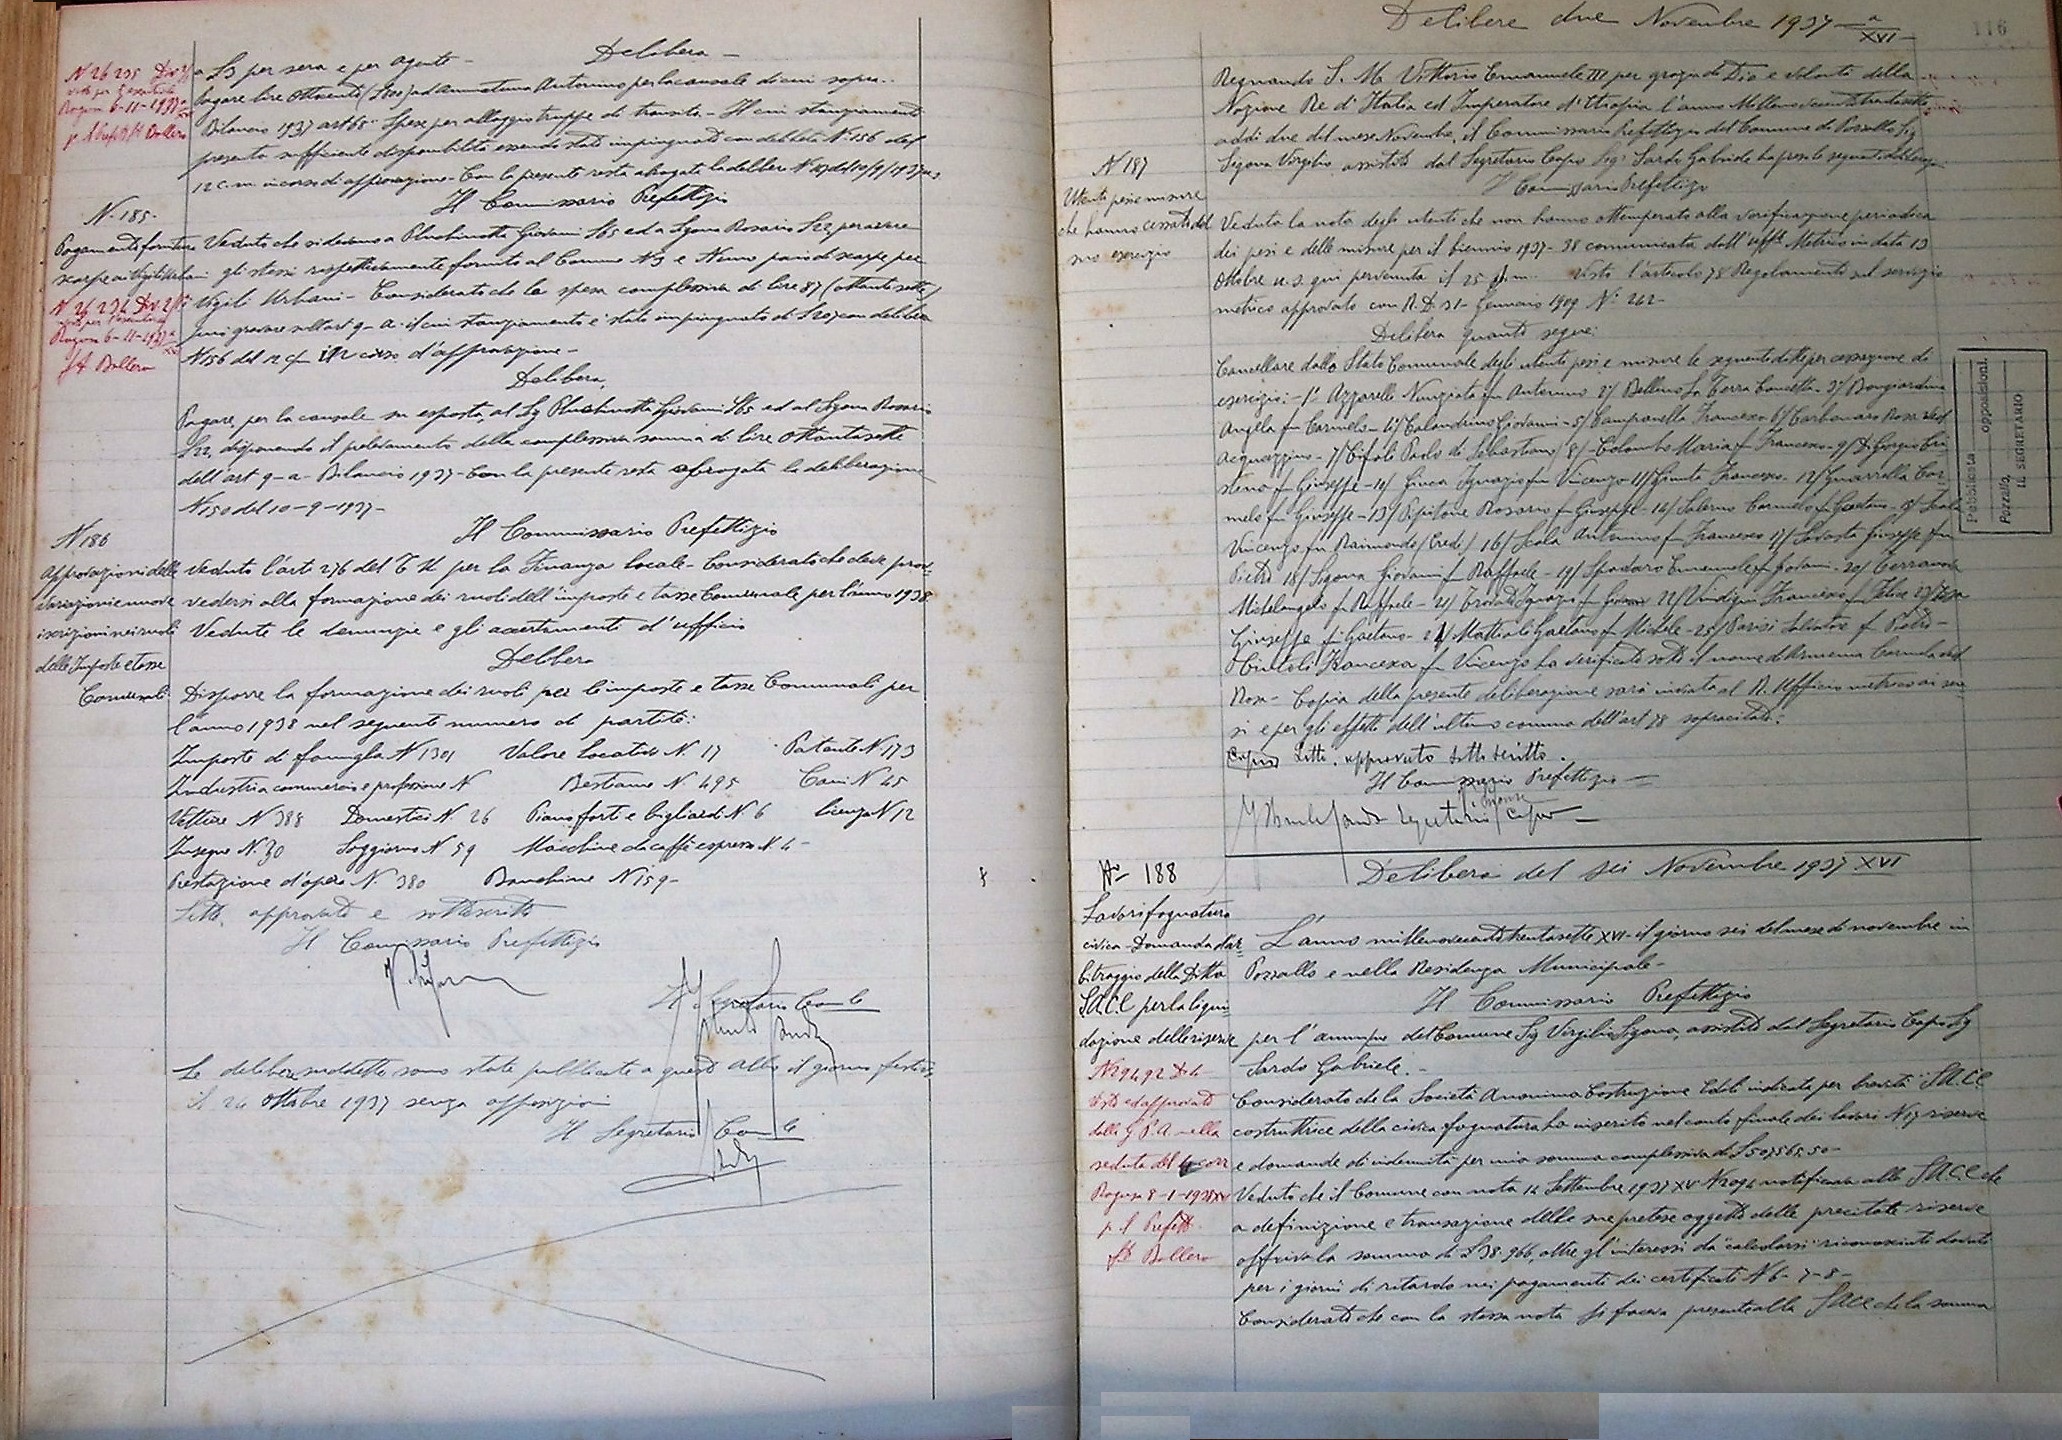 a L 3 per sera e per agente -
Delibera -
Pagare lire ottocento ad Ammatuna Antonino per la causale di cui sopra..
Bilancio 1937 art 68 " Spese per alloggio truppe di transito - Il cui stanziamento
presenta sufficiente disponibilità essendo stato impinguato con delibera N. 156 del
12 c.m. in corso di approvazione - Con la presente resta abrogata la delibera N
Il Commissario Prefettizio
N. 185.
Pagamento forniture
scarpe ai Vigili Urbani
Ragusa 6-11-1937
Veduto che si devono a Pluchinotta Giovanni L 65 ed a Sigona Rosario L 22 per avere
gli stessi rispettivamente fornito al Comune N 3 e N uno paio di scarpe per
Vigili Urbani - Considerato che la spesa complessiva di lire 87 (ottantasette)
può gravare sull'art 9 - a - il cui stanziamento è stato impinguato di L con delibera
N 156 del 12 c/m in corso d'approvazione -
Delibera
Pagare, per la causale su esposta, al Sig Pluchinotta Giovanni L 65 ed al Sigona Rosario
L 22, disponendo il prelevamento della complessiva somma di lire ottantasette
dall'art 9 - a - Bilancio 1937 - Con la presente resta abrogata la deliberazione
N 150 del 10-9-1937 -
Il Commissario Prefettizio
N 186
Approvazioni delle
variazioni e nuove
iscrizioni nei ruoli
delle Imposte e tasse
Comunali
Veduto l'arte 276 del T U per la Finanza locale - Considerato che deve prov-
vedersi alla formazione dei ruoli dell'imposte e tasse Comunale per l'anno 1938
Vedute le denunzie e gli accertamenti d'ufficio
Delibera
Disporre la formazione dei ruoli per le imposte e tasse Comunali per
l'anno 1938 nel seguente numero di partite:
Imposte di famiglia N 1301 Valore locativo N. 17 Patente N 173
Industria commercio e professione N Bestiame N. 495 Cani N 45
Vetture N 388 Domestici N. 26 Pianoforti e bigliardi N. 6 licenza N 12
Insegne N. 30 Soggiorno N 59 Macchine da caffè espresso N 4 -
Prestazione d'opera N. 380 Banchine N 159 -
Letto, approvato e sottoscritto
Il Commissario Prefettizio
Il Segretario Com le
Le delibere suddette sono state pubblicate a quest albo il giorno festivo
il 24 ottobre 1937 senza opposizioni
Il Segretario Com le
Delibere due Novembre 1937 - a XVI -
116
Regnando S. M. Vittorio Emanuele III per grazia di Dio e volontà della
Nazione Re d'Italia ed Imperatore d'Etiopia l'anno Millenovecentotrentasette
addì due del mese Novembre, il Commissario Prefettizio del Comune di Pozzallo Sig
Sigona Virgilio, assistito dal Segretario Capo Sig. Sardo Gabriele ha preso le seguenti delibere
Il Commissario Prefettizio
N 187
Utenti pesi e misure
che hanno cessato del
suo esercizio
Veduta la nota degli utenti che non hanno ottemperato alla verificazione periodica
dei pesi e delle misure per il biennio 1937-38 comunicata dall'uff° Metrico in data 13
Ottobre u.s. qui pervenuta il 25 Visto l'articolo 78 Regolamento sul servizio
metrico approvato con R.D. 31- Gennaio 1909 N. 242 -
Delibera quanto segue:
Cancellare dallo Stato Comunale degli utenti pesi e misure le seguenti ditte per cessazione di
esercizio: - 1° Azzarelli Nunziata fu Antonino 2/ Bellino La Terra Concetta - 3/ Bongiardina
Angela fu Carmelo - 4/ Calandrino Giovanni - 5/ Campanella Francesco 6/ Carbonaro Rosa ved
Acquazzino - 7/ Cifali Paolo di Sebastiano/ 8/ - Colombo Maria fu Francesco - 9/ Di Giorgio Cri-
stina fu Giuseppe - 10/ Giuca Ignazio fu Vincenzo 11/ Giunta Francesco - 12/ Guarrella Car-
melo fu Giuseppe - 13/ Pipitone Rosario fu Giuseppe - 14/ Salerno Carmelo fu Gaetano - 15/ Scala
Vincenzo fu Raimondo (Erede) 16/ Scala Antonino fu Francesco 17/ Giuseppe fu
Pietro 18/ Sigona Giovanni fu Raffaele - 19/ Spadaro Emanuele fu 20/ Terranova
Michelangelo fu Raffaele - 21/ Ignazio fu 22/ Vindigni Francesco fu Felice 23/
Giuseppe fu Gaetano - 24/ Gaetano fu Michele - 25/ Parisi Salvatore fu Pietro -
Francesca fu Vincenzo ha verificato sotto il nome di Armenia Carmela di
Rosa - Copia della presente deliberazione sarà inviata al R. Ufficio metrico ai sen-
si e per gli effetti dell'ultimo comma dell'art 78 sopracitato.
Letto, approvato sottoscritto.
Il Commissario Prefettizio -
Segretario Capo -
Pubblicata opposizioni.
Pozzallo,
IL SEGRETARIO
N° 188
Delibera del sei Novembre 1937 XVI
Lavori fognatura
civica - Domanda d'ar-
bitraggio della Ditta
S.A.C.E. per la liqui-
dazione delle riserve
L'anno millenovecentotrentasette XVI - il giorno sei del mese di novembre in
Pozzallo e nella Residenza Municipale -
Il Commissario Prefettizio
per l'amm/ne del Comune Sig Virgilio Sigona, assistito dal Segretario Capo Sig
Sardo Gabriele. -
Visto ed approvato
dalla G.P.A. nella
seduta del 4 corr
Ragusa 8-1-1938 XVI
p. il Prefetto
Considerato che la Società Anonima Costruzione Edili indicata per brevità "S.A.C.E.
costruttrice della civica fognatura ha inserito nel conto finale dei lavori N 17 riserve
e domande di indennità per una somma complessiva di L 507565,50 -
Veduto che il Comune con nota 14 Settembre 1937 XV N notificava alla S.A.C.E. che
a definizione e transazione delle sue pretese oggetto delle precitate riserve
offriva la somma di L 38.966, oltre gl'interessi da "calcolarsi" riconosciuto dovuti
per i giorni di ritardo nei pagamenti dei certificati N 6 - 7 - 8 -
Considerato che con la stessa nota si faceva presente alla SACE che la somma